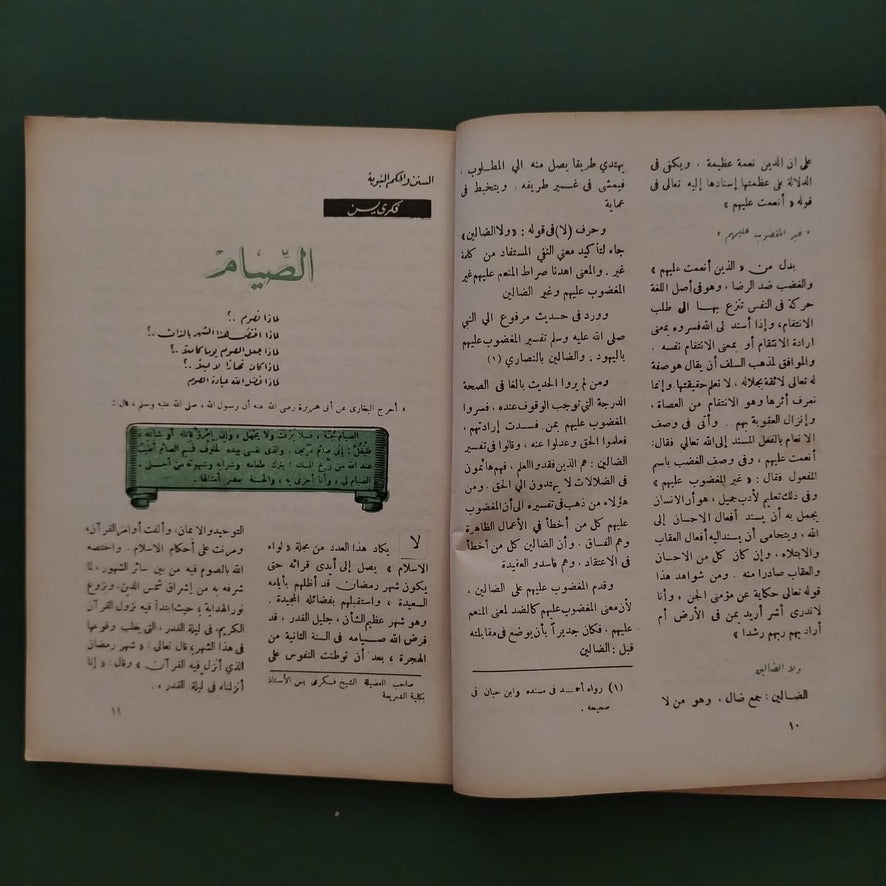 على ان الدين نعمة عظيمة ، ويكفى فى
الدلالة على عظمتها إسنادها إليه تعالى فى
قوله « أنعمت عليهم »
« غير المغضوب عليهم »
بدل من « الذين أنعمت عليهم »
والغضب ضد الرضا ، وهو فى أصل اللغة
حركة فى النفس تنزع بها الى طلب
الانتقام ، وإذا أسند لى الله فسروه بمعنى
ارادة الانتقام أو بمعنى الانتقام نفسه .
والموافق لمذهب السلف أن يقال هو صفة
له تعالى لائقة بجلاله ، لا نعلم حقيقتها وإنما
نعرف أثرها وهو الانتقام من العصاة ،
وإنزال العقوبة بهم . وأتى فى وصف
الانعام بالفعل المسند إلى الله تعالى فقال :
أنعمت عليهم ، وفى وصف الغضب باسم
المفعول فقال : « غير المغضوب عليهم »
وفى ذلك تعليم لأدب جميل ، هو أن الانسان
يجمل به أن يسند أفعال الاحسان إلى
الله ، ويتحامى أن يسند اليه أفعال العقاب
والابتلاء ، وإن كان كل من الاحسان
والعقاب صادرا منه . ومن شواهد هذا
قوله تعالى حكاية عن مؤمنى الجن « وأنا
لاندرى أشر أريد بمن فى الأرض أم
أراد بهم ربهم رشدا »
ولا الضالين
الضالين : جمع ضال ، وهو من لا
١٠
يهتدي طريقا يصل منه الي المطلوب ،
فيمشى فى غير طريقه . ويتخبط فى
عماية
وحرف (لا) فى قوله : « ولا الضالين »
جاء لتأكيد معنى النفي المستفاد من كلمة
غير . والمعنى اهدنا صراط المنعم عليهم غير
المغضوب عليهم وغير الضالين
وورد فى حديث مرفوع الي النبي
صلى الله عليه وسلم تفسير المغضوب عليهم
باليهود ، والضالين بالنصاري (١)
ومن لم يروا الحديث بالغا فى الصحة
الدرجة التي توجب الوقوف عنده ، فسروا
المغضوب عليهم بمن فسدت إرادتهم ،
فعلموا الحق وعدلوا عنه ، وقالوا فى تفسير
الضالين : هم الذين فقدوا العلم ، فهم هائمون
فى الضلالات لا يهتدون الي الحق . ومن
هؤلاء من ذهب فى تفسيره الى أن المغضوب
عليهم كل من أخطأ فى الأعمال الظاهرة
وهم الفساق . وأن الضالين كل من أخطأ
فى الاعتقاد ، وهم فاسدو العقيدة
وقدم المغضوب عليهم على الضالين ،
لأن معنى المغضوب عليهم كالضد لمعنى المنعم
عليهم . فكان جديراً بأن يوضع فى مقابلته
قبل : الضالين
(١) رواه أحمد فى مسنده وابن حبان فى
صحيحه .
السنن والحكم النبوية
فكرى يسن
الصِّيام
لماذا نصوم ..؟
لماذا اختص هذا الشهر بالذات ..؟
لماذا جعل الصوم يوما كاملا ..؟
لماذا كان نهارًا لا ليلا ..؟
لماذا فضل الله عبادة الصوم
« أخرج البخارى عن أبى هريرة رضى الله عنه أن رسول الله ، صلى الله عليه وسلم ، قال :
الصيام جُنّة ، فلا يَرْفث ولا يَجْهَل ، وإن امرؤٌ قاتله أو شاتَمه ،
فليقلْ : إنى صائم مرّتين . والذى نفسى بيده لخلوف فم الصائم أطيبُ
عند الله من رِيح المسك ! يترك طعامه وشرابه وشهوته من أجلى .
الصيام لى ، وأنا أجزى به ، والحسنة بعشر أمثالها .
لا يكاد هذا العدد من مجلة « لواء
الاسلام » يصل إلى أيدى قرائه حتى
يكون شهر رمضان قد أظلهم بأيامه
السعيدة ، واستقبلهم بفضائله المجيدة .
وهو شهر عظيم الشأن ، جليل القدر ، قد
فرض الله صيامه فى السنة الثانية من
الهجرة ، بعد أن توطنت النفوس على
صاحب الفضيلة الشيخ فكرى يس الأستاذ
بكلية الشريعة
التوحيد والايمان ، وألفت أوامر القرآن ،
ومرنت على أحكام الاسلام . واختصه
الله بالصوم فيه من بين سائر الشهور ، لما
شرفه به من إشراق شمس الدين ، وبزوغ
نور الهداية ، حيث ابتدأ فيه نزول القرآن
الكريم ، فى ليلة القدر ، التى يغلب وقوعها
فى هذا الشهر ، قال تعالى : « شهر رمضان
الذى أنزل فيه القرآن » وقال : « إنا
أنزلناه فى ليلة القدر » .
١١